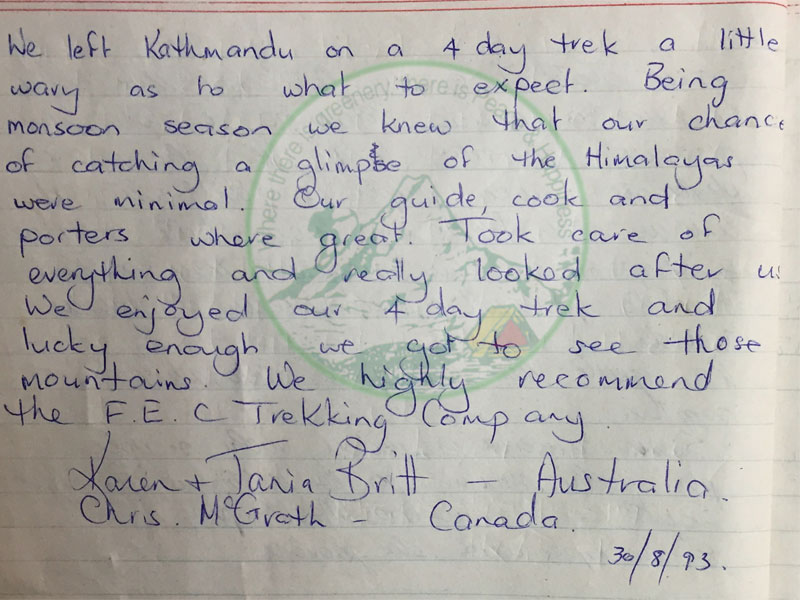 We left Kathmandu on a 4 day trek a little
wary as to what to expect. Being
monsoon season we knew that our chance
of catching a glimpse of the Himalayas
were minimal. Our guide, cook and
porters where great. Took care of
everything and really looked after us
We enjoyed our 4 day trek and
lucky enough we got to see those
mountains. We highly recommend
the F.E.C Trekking Company.
Karen + Tania Britt - Australia.
Chris. McGrath - Canada.
30/8/93.
where there is greenery there is Peace & Happiness